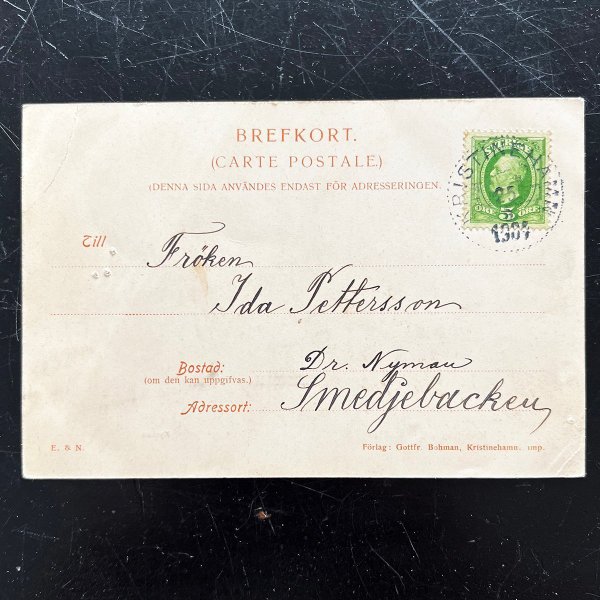 BREFKORT.
(CARTE POSTALE.)
(DENNA SIDA ANVÄNDES ENDAST FÖR ADRESSERINGEN.
Till
Fröken
Ida Pettersson
Bostad:
(om den kan uppgifvas.)
Dr. Nyman
Adressort:
Smedjebacken
E. & N.
Förlag: Gottfr. Bohman, Kristinehamn. imp.
RISTINEHAMN
5
ÖRE